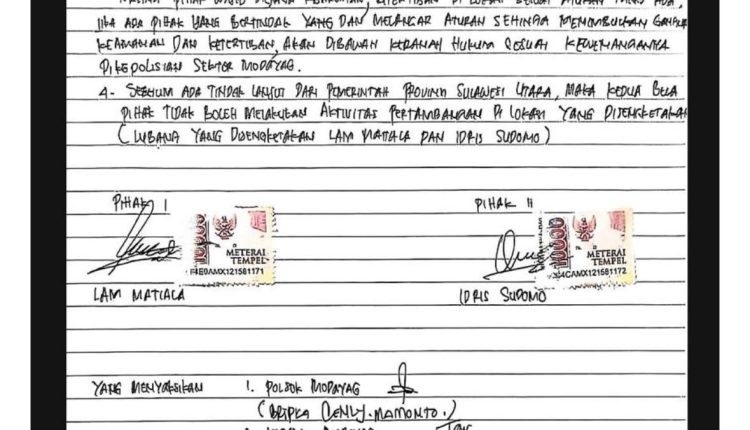 JIKA ADA PIHAK YANG BERTINDAK YANG DAN MELANCAR ATURAN SEHINGGA MENIMBULKAN
KEAMANAN DAN KETERTIBAN, AKAN DIBAWAH KERANAH HUKUM SESUAI KEWENANGANNYA
DIKEPOLISIAN SEKTOR MODAYAG.
4- SEBELUM ADA TINDAK LANJUT DARI PEMERINTAH PROVINSI SULAWESI UTARA, MAKA KEDUA BELA
PIHAK TIDAK BOLEH MELAKUKAN AKTIVITAS PERTAMBANGAN DI LOKASI YANG DISENGKETAKAN
(LUBANG YANG DISENGKETAKAN LAM MATIALA DAN IDRIS SUDOMO)
PIHAK I PIHAK II
10000 METERAI TEMPEL 10000 METERAI TEMPEL
EDAMX121581171 CAMX121581172
LAM MATIALA IDRIS SUDOMO
YANG MENYAKSIKAN 1. POLSEK MODAYAG
(BRIPKA DENLY. MAMONTO.)